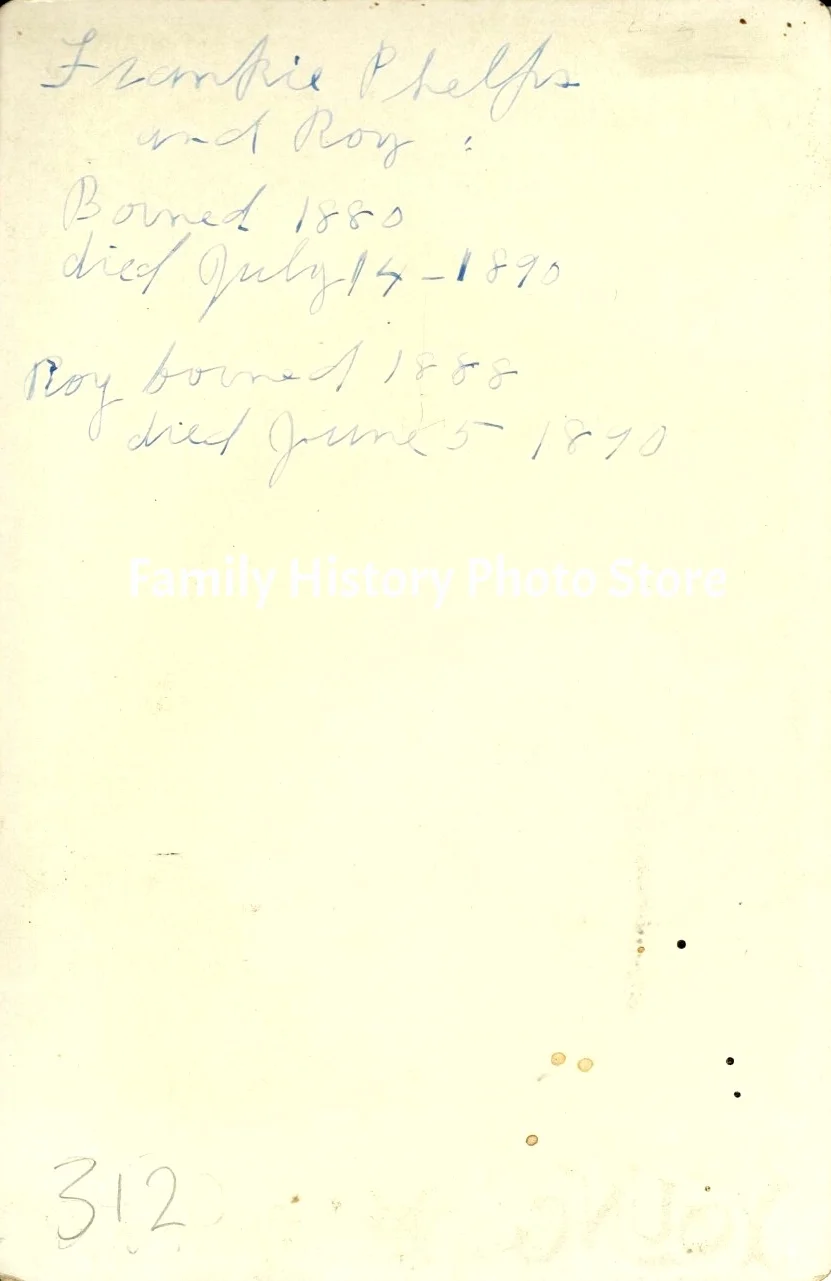 Frankie Phelps
and Roy :
Borned 1880
died July 14 - 1890
Roy borned 1888
died June 5 1890
Family History Photo Store
312